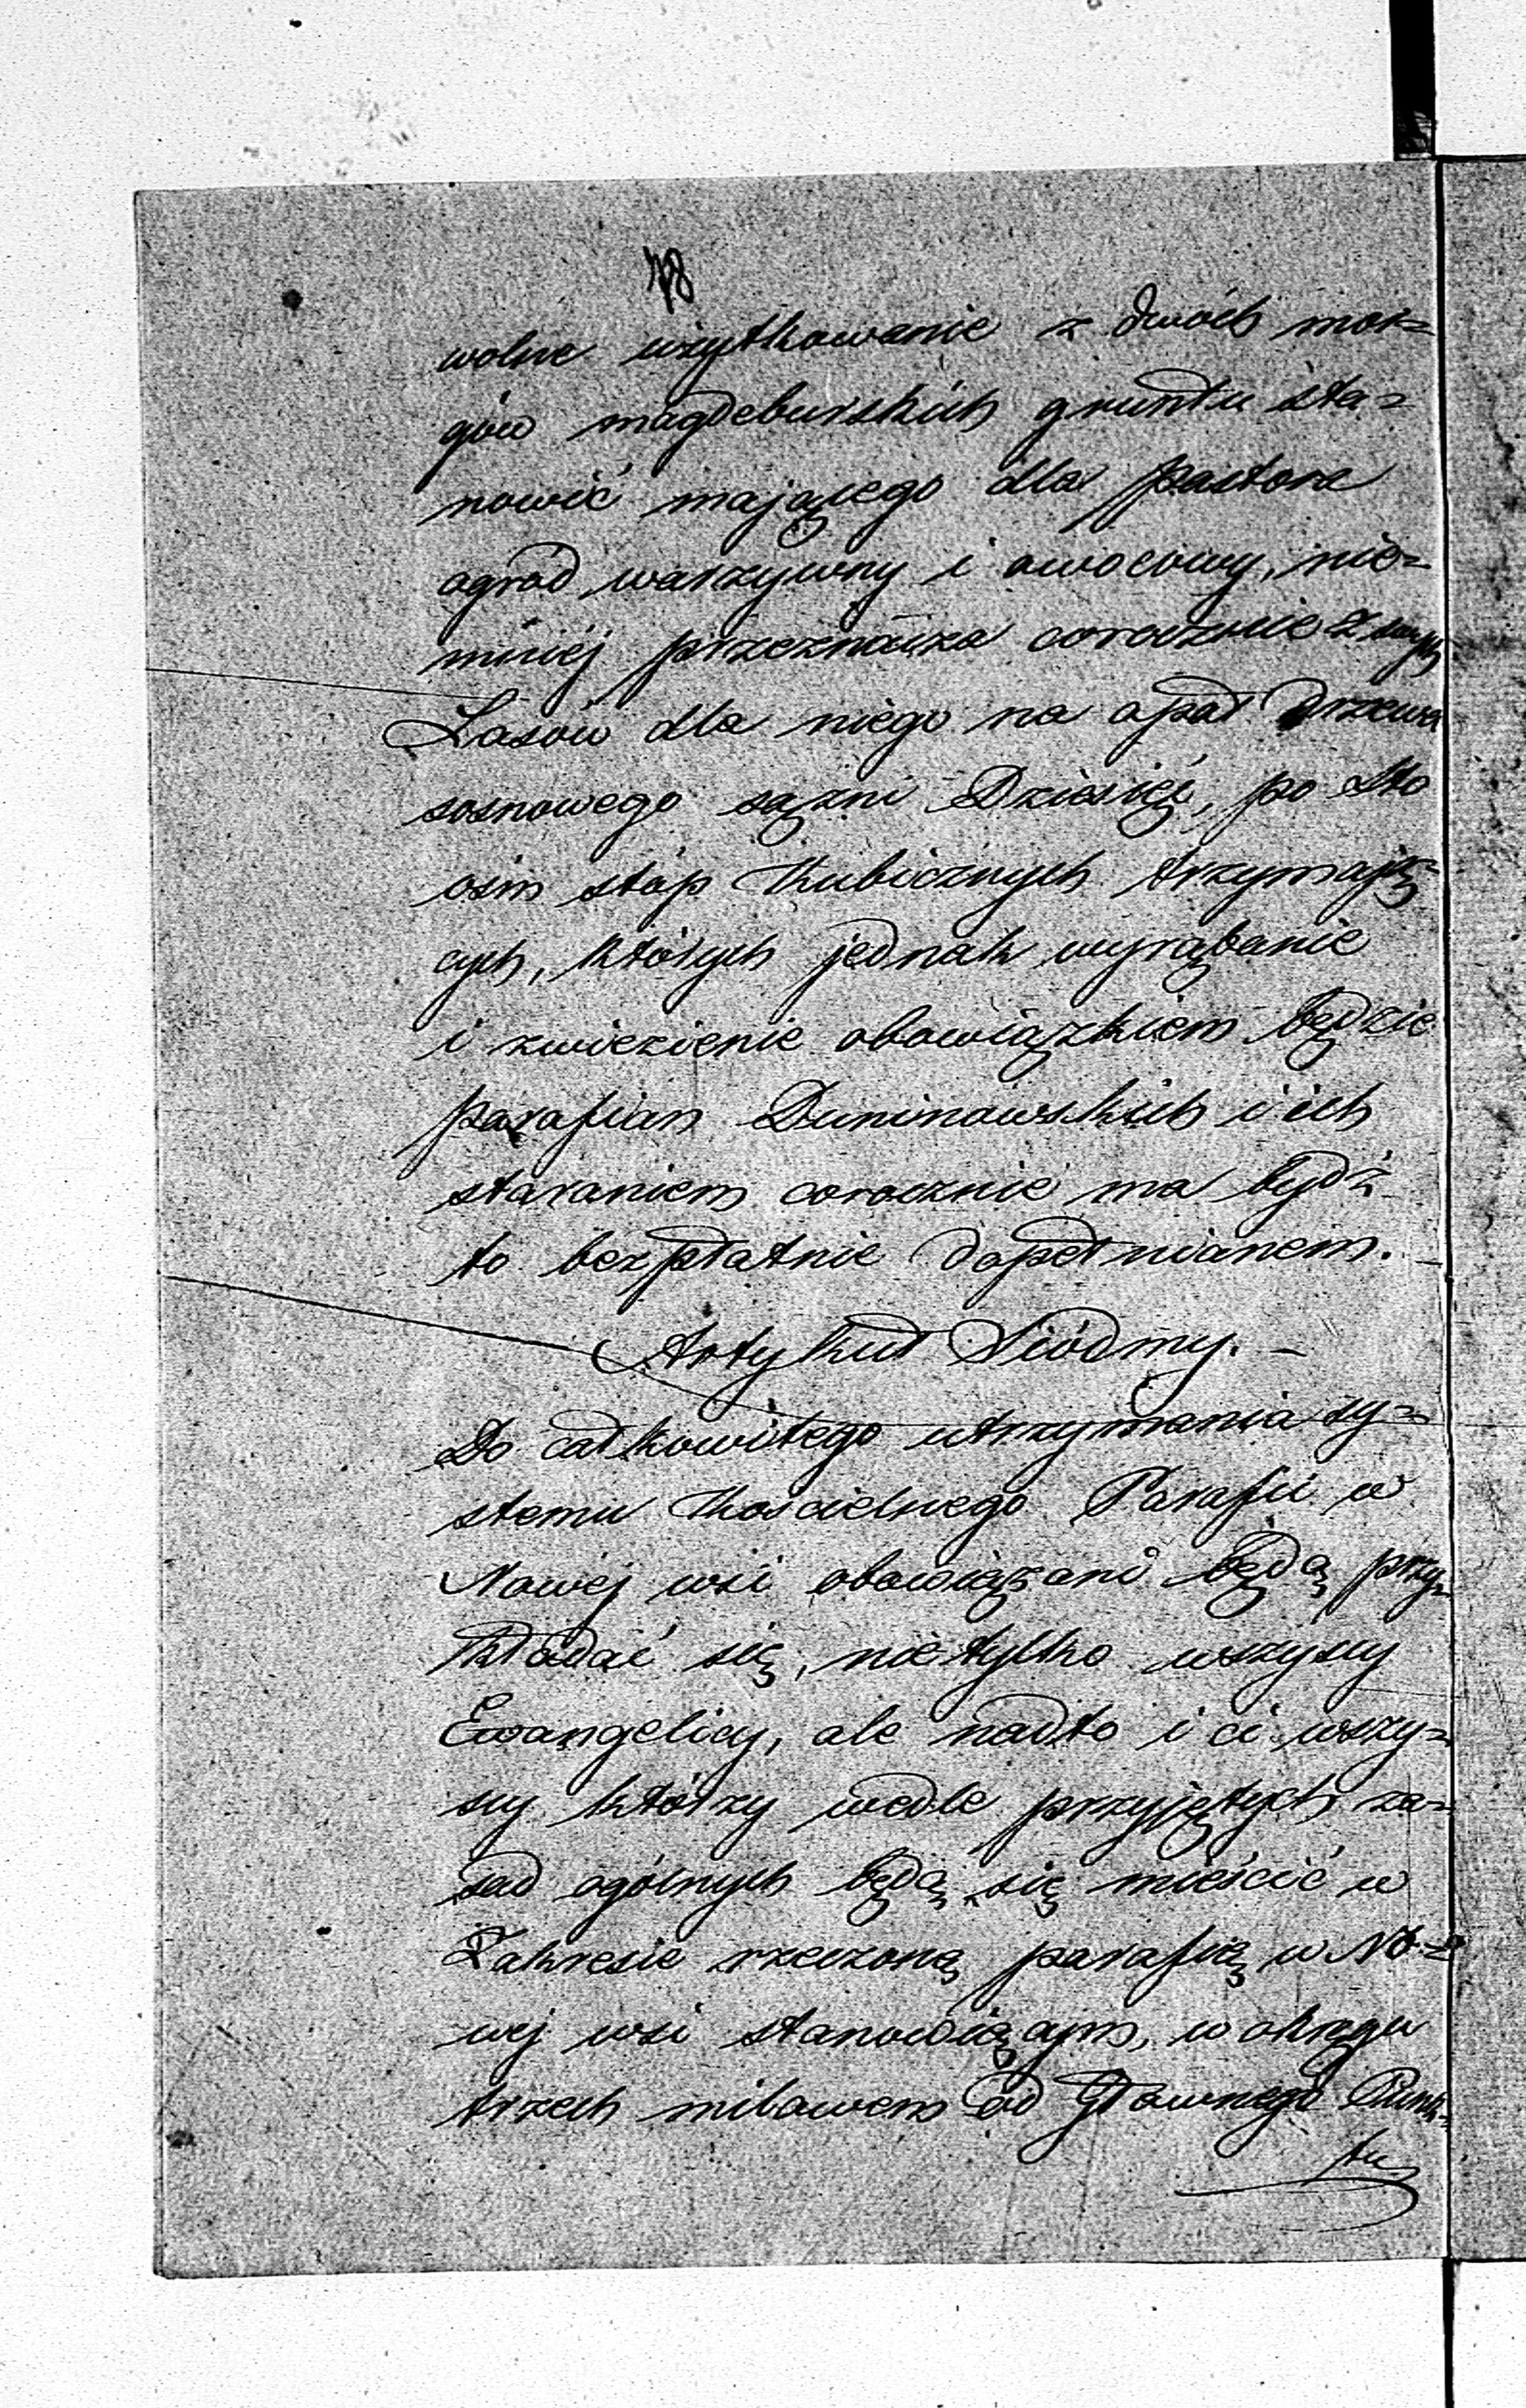 78
wolne użytkowanie z dwóch mor=
gów magdeburskich gruntu sta=
nowić mającego dla pastora
ogród warzywny i owocowy, nie=
mniej przeznacza corocznie z swych
Lasów dla niego na opał drzewa
sosnowego sążni Dziesięć, po sto
ośm stóp kubicznych trzymają=
cych, których jednak wyrąbanie
i zwiezienie obowiązkiem będzie
parafian Duninowskich i ich
staraniem corocznie ma bydź
to bezpłatnie dopełnianem. —
Artykuł Siódmy. —
Do całkowitego utrzymania sy=
stemu kościelnego Parafii w
Nowej wsi obowiązani będą przy=
kładać się, nie tylko wszyscy
Ewangelicy, ale nadto i ci wszy=
scy którzy wedle przyjętych za=
sad ogólnych będą się mieścić w
Zakresie rzeczoną parafią w No=
wej wsi stanowiącym, w okręgu
trzech milowem od Głównego Punk=
tu